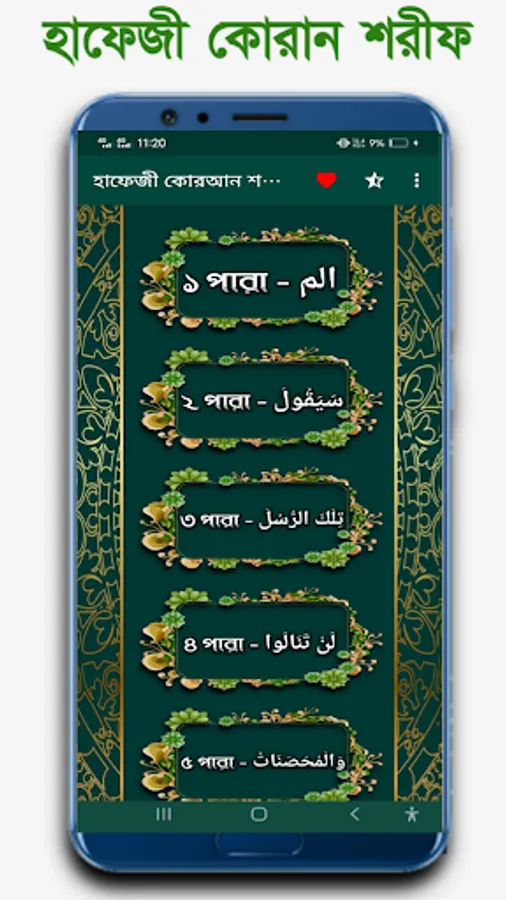 হাফেজী কোরান শরীফ
11:20 9%
হাফেজী কোরআন শ...
১ পারা - الم
২ পারা - سَيَقُولَ
৩ পারা - تِلْكَ الرُّسُلُ
৪ পারা - لَنْ تَنَالُوا
৫ পারা - وَالْمُحْصَنَاتُ